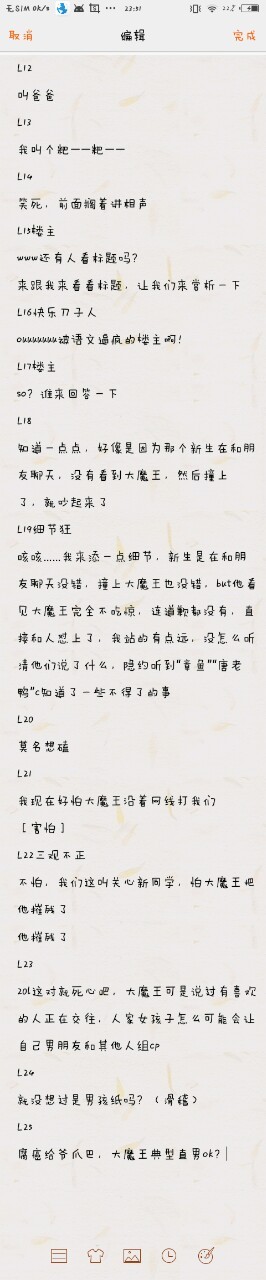 无SIM 0k/s ... 23:51 22%
取消 编辑 完成
L12
叫爸爸
L13
我叫个粑——粑——
L14
笑死，前面搁着讲相声
L15楼主
www还有人看标题吗？
来跟我来看看标题，让我们来赏析一下
L16快乐刀子人
ouuuuuuu被语文逼疯的楼主啊！
L17楼主
so？谁来回答一下
L18
知道一点点，好像是因为那个新生在和朋
友聊天，没有看到大魔王，然后撞上
了，就吵起来了
L19细节狂
咳咳……我来添一点细节，新生是在和朋
友聊天没错，撞上大魔王也没错，but他看
见大魔王完全不吃惊，连道歉都没有，直
接和人怼上了，我站的有点远，没怎么听
清他们说了什么，隐约听到“章鱼”“唐老
鸭”c知道了一些不得了的事
L20
莫名想磕
L21
我现在好怕大魔王沿着网线打我们
［害怕］
L22三观不正
不怕，我们这叫关心新同学，怕大魔王把
他摧残了
他摧残了
L23
20l这对就死心吧，大魔王可是说过有喜欢
的人正在交往，人家女孩子怎么可能会让
自己男朋友和其他人组cp
L24
就没想过是男孩纸吗？（滑稽）
L25
腐癌给爷爪巴，大魔王典型直男ok？